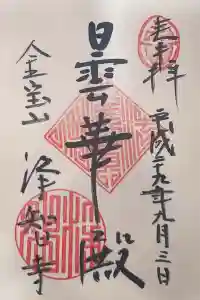 奉拝
平成二十九年九月三日
曇華殿
金宝山
浄智寺